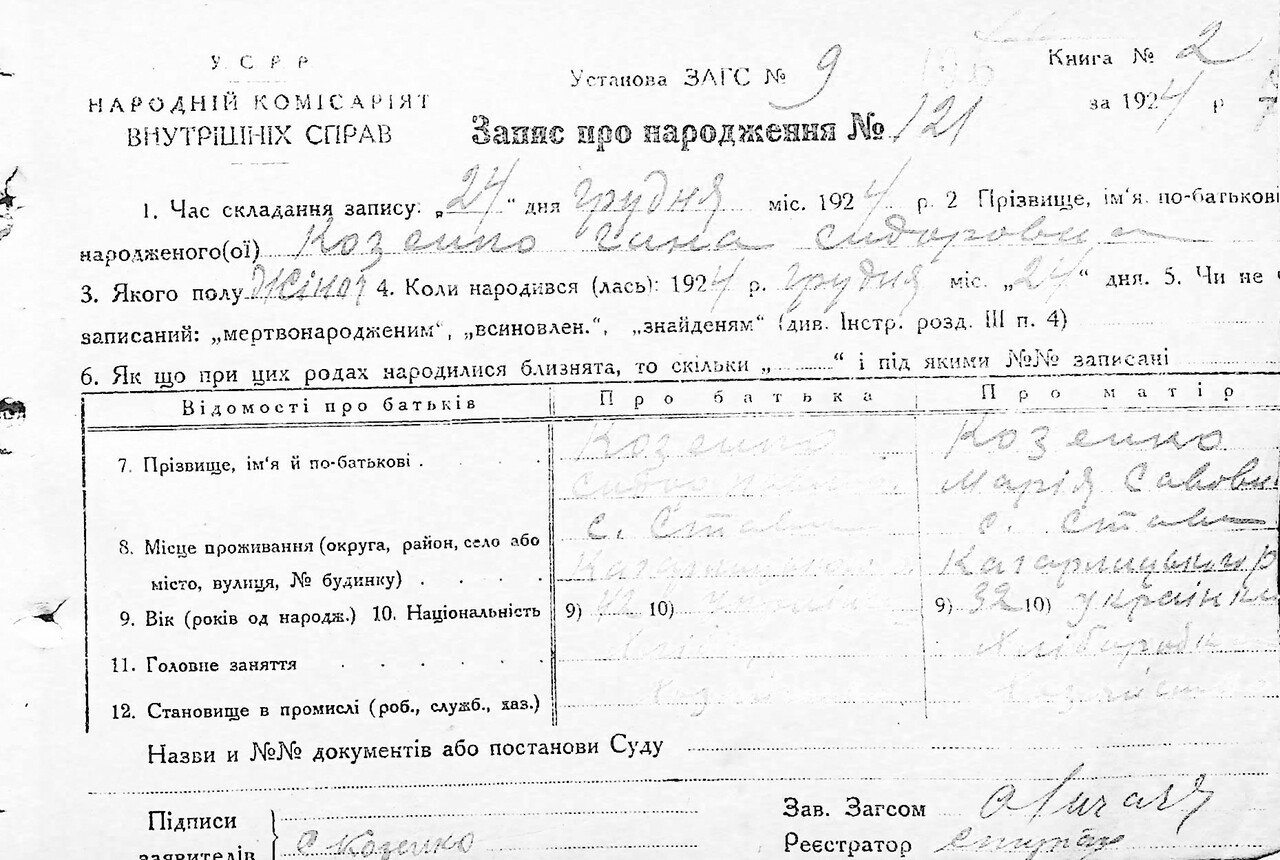 У С Р Р
НАРОДНІЙ КОМІСАРІЯТ
ВНУТРІШНІХ СПРАВ
Установа ЗАГС № 9
Книга № 2
за 1924 р
Запис про народження № 121
1. Час складання запису: „24“ дня грудня міс. 1924 р. 2 Прізвище, ім'я. по-батькові
народженого(ої) Козенко сидоровна
3. Якого полу Жіноч 4. Коли народився (лась): 1924 р. грудня міс. „24“ дня. 5. Чи не
записаний: „мертвонародженим“, „всиновлен.“, „знайденям“ (див. Інстр. розд. III п. 4)
6. Як що при цих родах народилися близнята, то скільки „ “ і під якими №№ записані
Відомості про батьків Про батька Про матір
7. Прізвище, ім'я й по-батькові Козенко Козенко
Марія Савовн
8. Місце проживання (округа, район, село або с. Стави с. Стави
місто, вулиця, № будинку) Кагарлицького Кагарлицького р
9. Вік (років од народж.) 10. Національність 9) 42 10) 9) 32 10) українк
11. Головне заняття Хліборобка
12. Становище в промислі (роб., служб., хаз.)
Назви и №№ документів або постанови Суду
Підписи
заявителів С Козенко
Зав. Загсом
Реєстратор